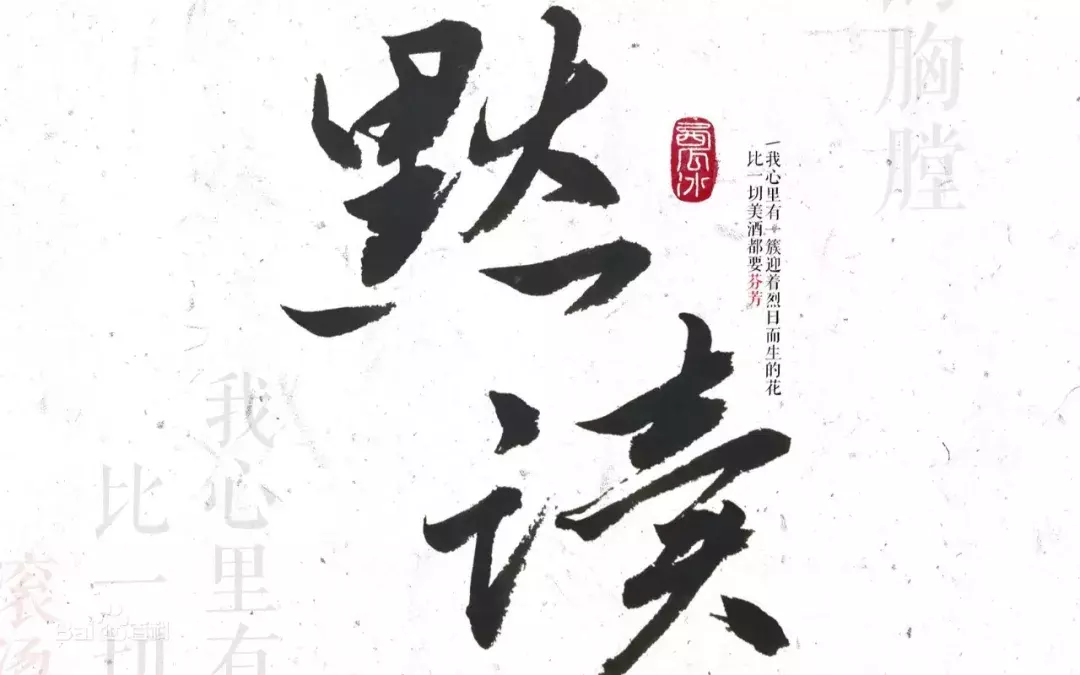 默读
一我心里有一簇迎着烈日而生的花
比一切美酒都要芬芳
胸膛
我心里有
比一切
滚汤
Bai百科